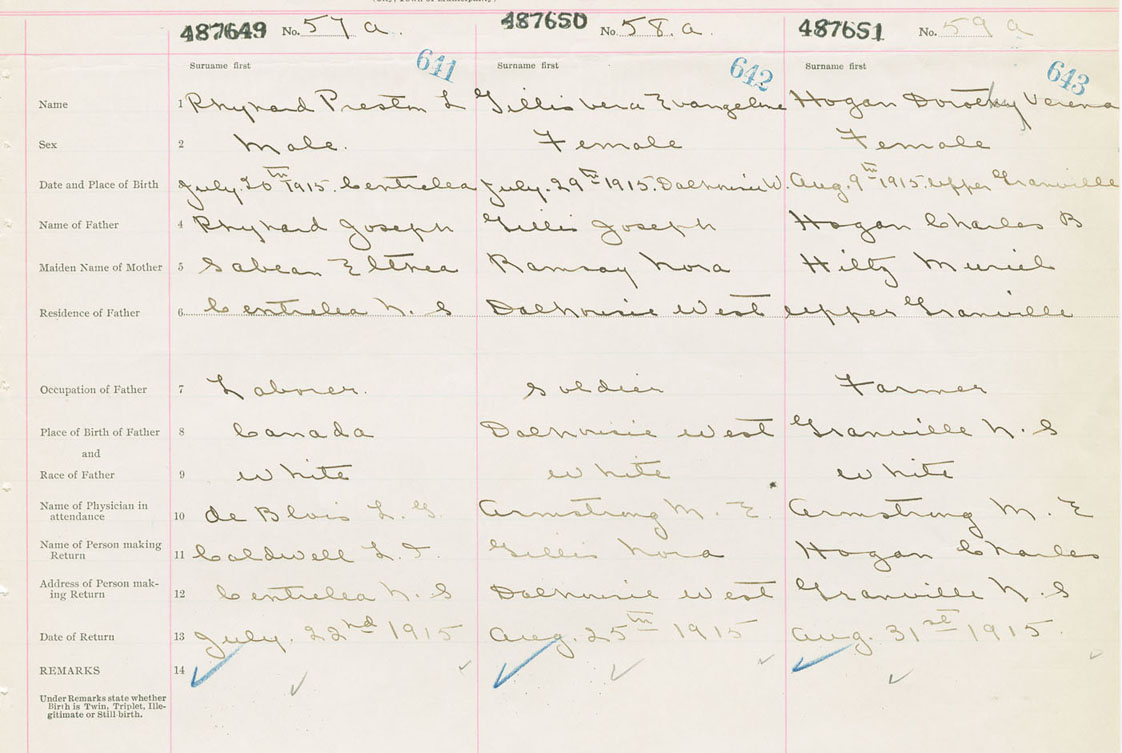 487649 No. 57 a. 487650 No. 58. a. 487651 No. 59 a
641 642 643
Surname first Surname first Surname first
Name 1 Rhynard Preston L Gillis Vera Evangeline Hogan Dorothy Verena
Sex 2 Male. Female Female
Date and Place of Birth 3 July. 20th 1915. Centrelea July. 29th 1915. Dalhousie W. Aug. 9th 1915. Upper Granville
Name of Father 4 Rhynard Joseph Gillis Joseph Hogan Charles B
Maiden Name of Mother 5 Sabean Elthea Ramsay Nora Hiltz Muriel
Residence of Father 6 Centrelea N. S Dalhousie West Upper Granville
Occupation of Father 7 Laborer. Soldier Farmer
Place of Birth of Father 8 Canada Dalhousie West Granville N. S
and
Race of Father 9 White White White
Name of Physician in
attendance 10 de Blois L. G. Armstrong M. E. Armstrong M. E
Name of Person making
Return 11 Caldwell L. T. Gillis Nora Hogan Charles
Address of Person mak-
ing Return 12 Centrelea N. S Dalhousie West Granville N. S
Date of Return 13 July. 22nd 1915 Aug. 25th 1915 Aug. 31st 1915.
REMARKS 14
Under Remarks state whether
Birth is Twin, Triplet, Ille-
gitimate or Still-birth.